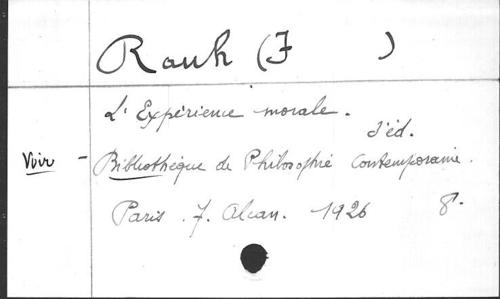 Rauh (F )
L'Expérience morale.
3'éd.
Voir - Bibliothèque de Philosophie Contemporaine.
Paris. F. Alcan. 1926 8°.